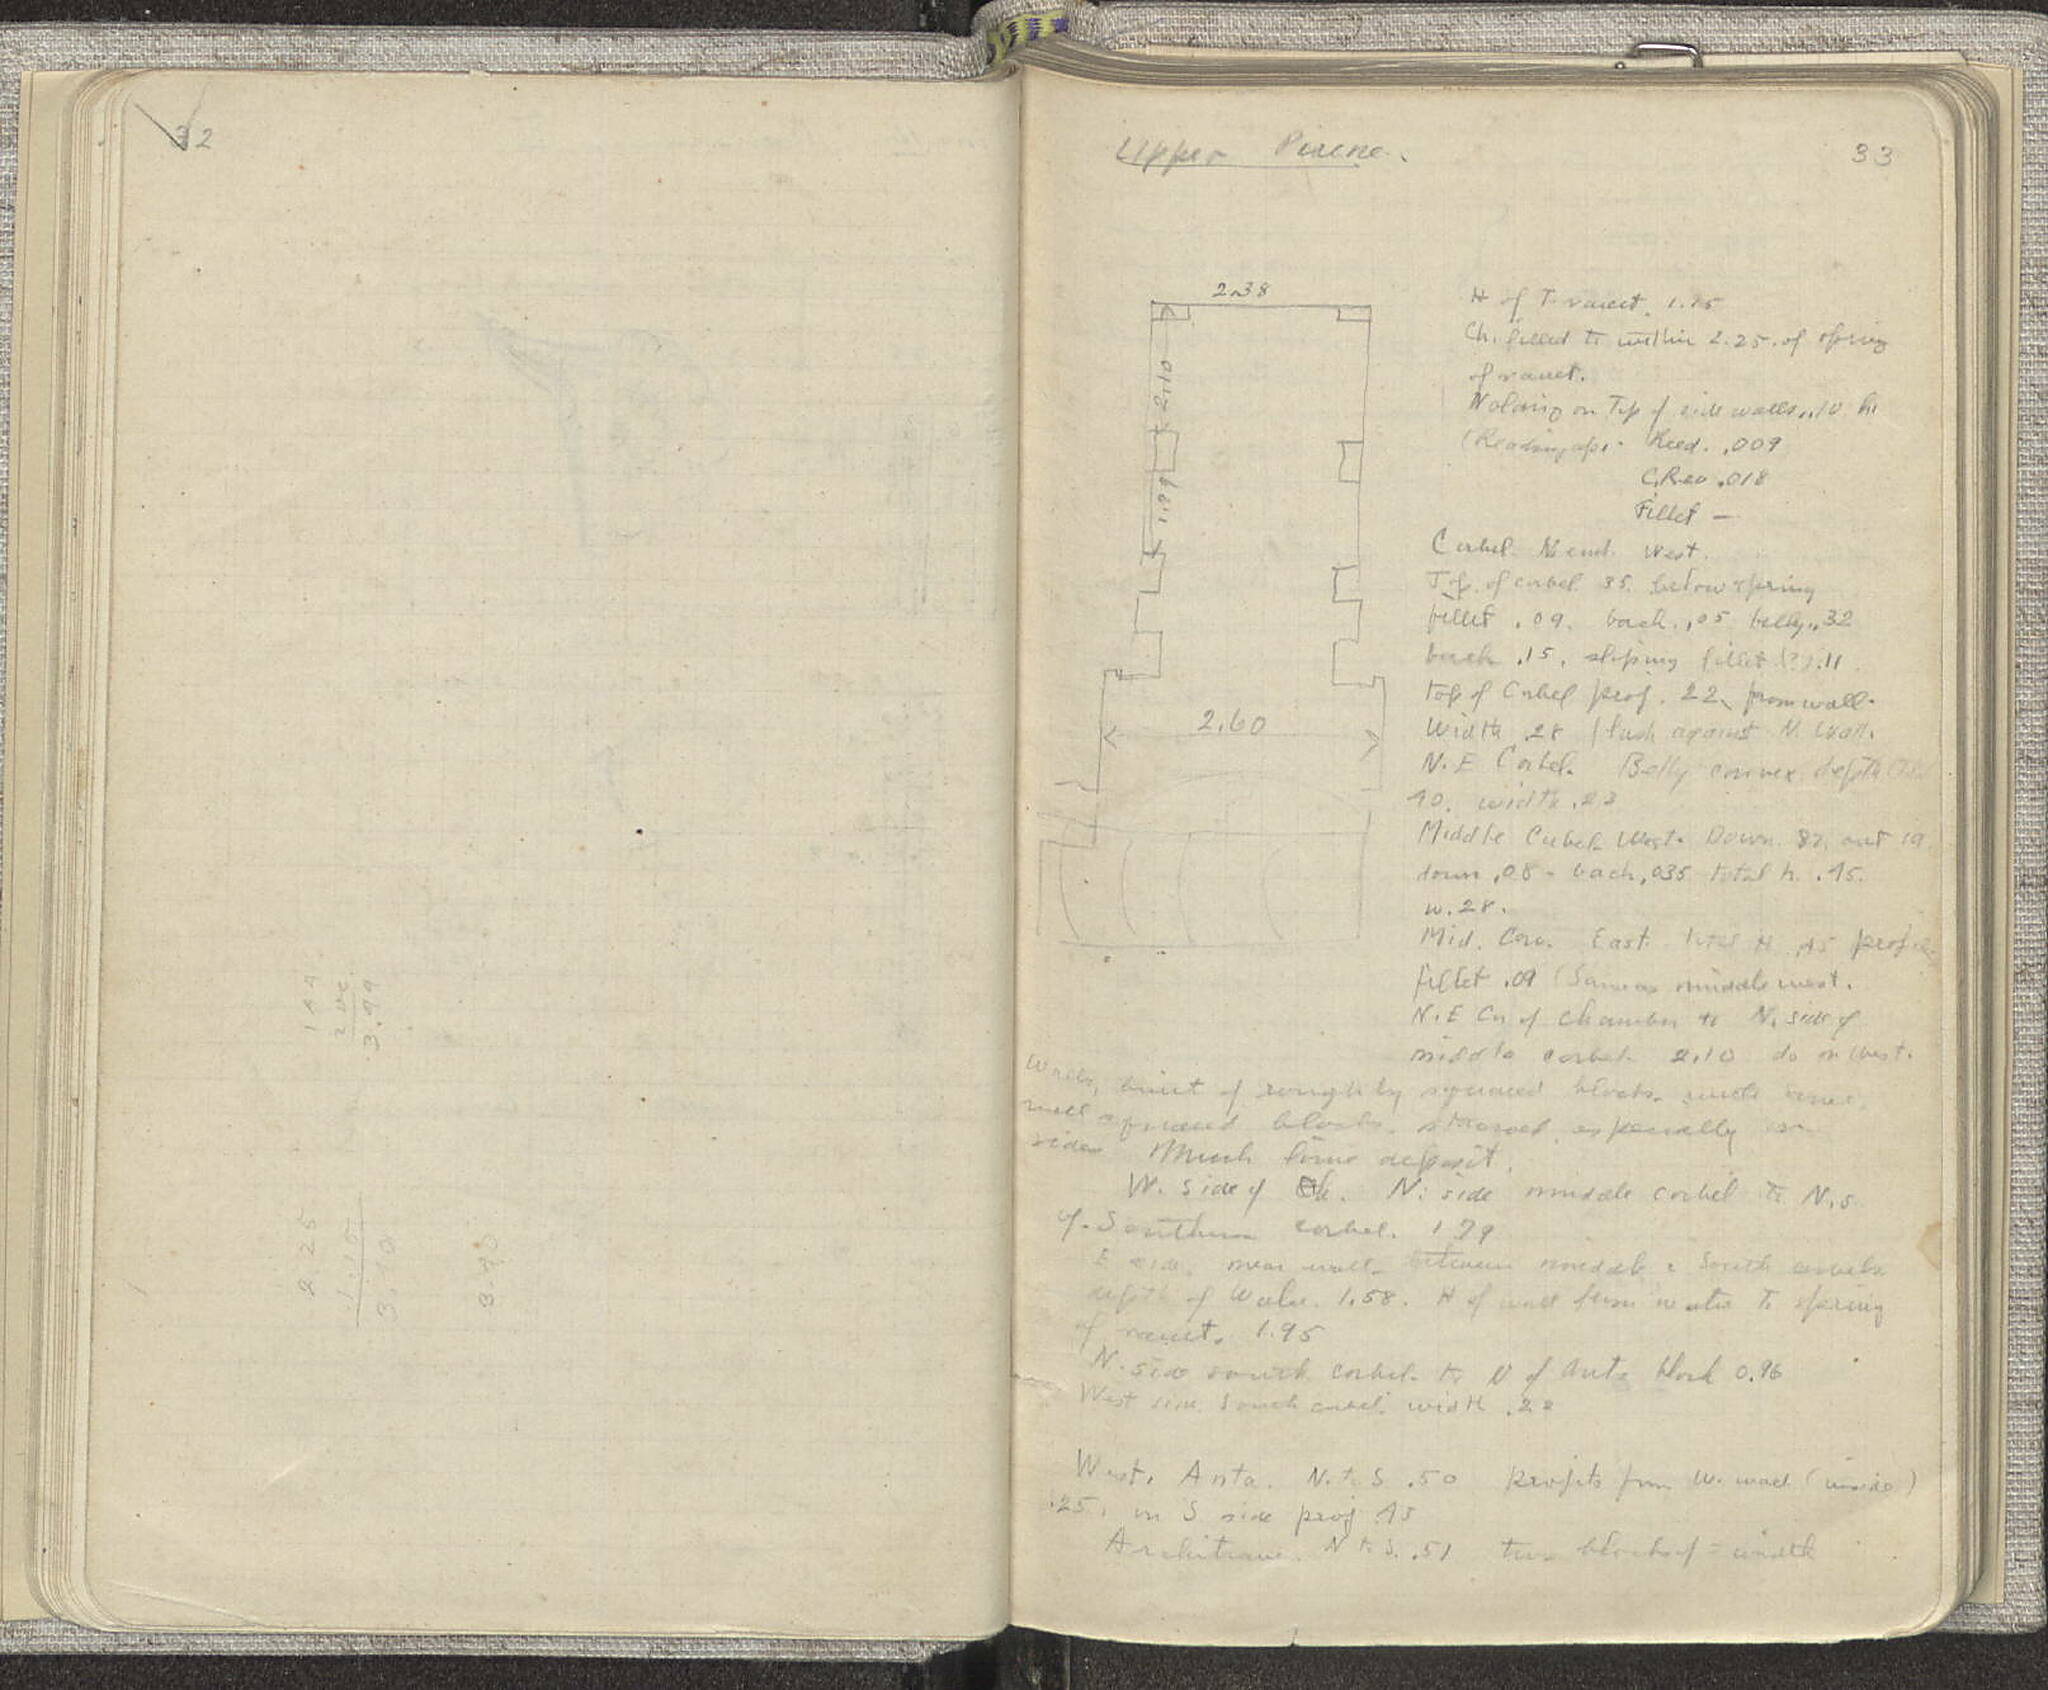 32
1.99
2.00
3.99
2.25
1.15
3.40
3.40
Upper Pirene.
33
2.38
2.10
1.89
2.60
H of T. vault. 1.15
Ch. filled to within 2.25. of spring
of vault.
on top of side walls, .10 h.
(Reading up: Reed. .009
C. Rev .018
Fillet –
Corbel. N end. West.
Top of corbel .35. below spring
fillet .09. back .05 belly .32
back .15, sloping fillet (?) .11.
top of Corbel proj. .22 from wall.
Width .28 flush against N. Wall.
N.E Corbel. Belly convex, depth
40. width .23
Middle Corbel West. Down. 82, out 19
down .08 - back .035 total h. .45.
w. .28.
Mid. Cor. East. total H .45 profile
fillet .09 (Same as middle west.
N.E Cor of Chamber to N. side of
middle corbel. 2.10 do on West.
Walls, built of roughly squared blocks.
well squared blocks. stuccoed, especially on
sides Much lime deposit.
W. Side of Ch. N. side middle corbel to N.S.
of Southern corbel. 1.79
E side. near wall. between middle & South corbels
depth of Water. 1.58. H of wall from water to spring
of vault. 1.95
N. side south corbel. to N of Anta block 0.96
West side. South corbel. width .28
West. Anta. N. to S .50 projects from W. wall (inside)
.25. on S side proj .45
Architrave. N to S. .51 two blocks of = width